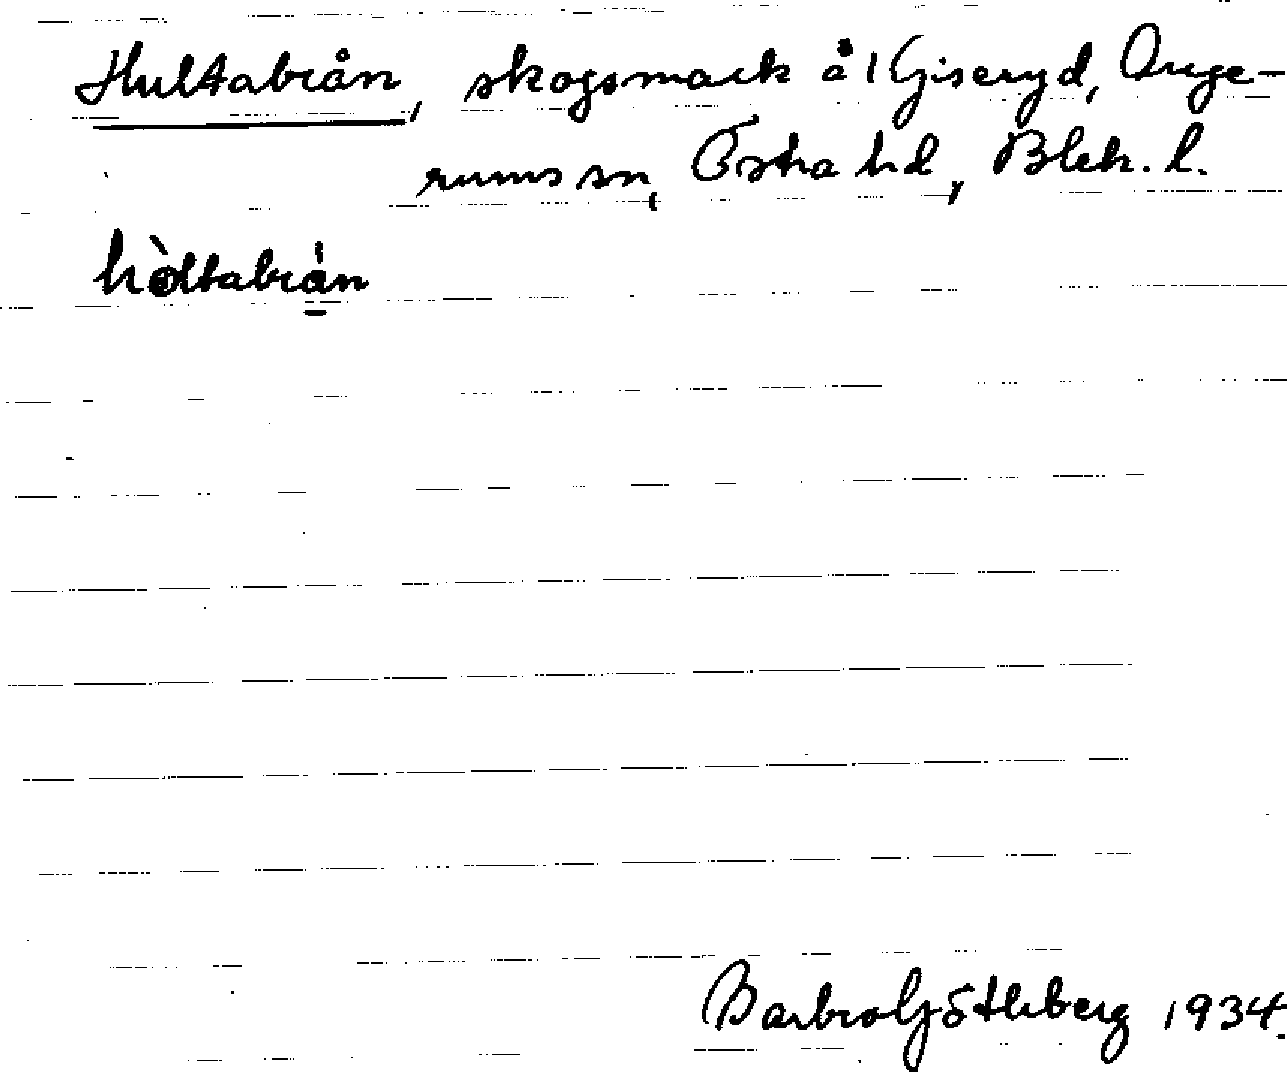 Hultabrån, skogsmark å 1 Giseryd, Ringe-
rums sn, Östra hd, Blek. l.
hòltabrån
Barbro Götlberg 1934.